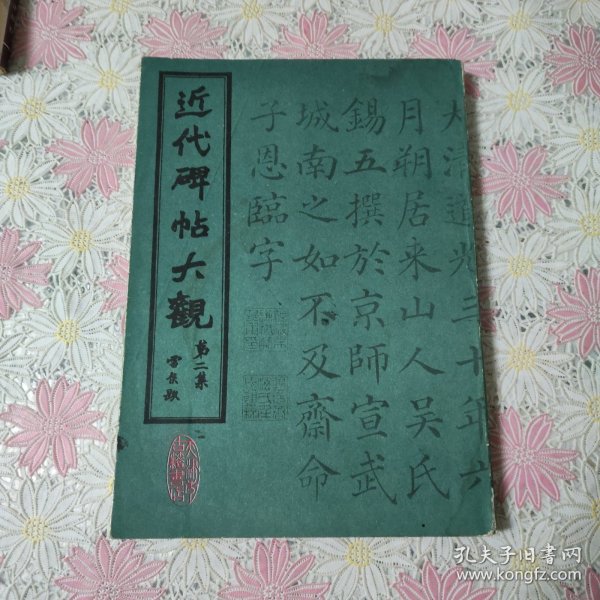 近代碑帖大觀
第二集
大清道光三十年六
月朔居来山人吴氏
錫五撰於京師宣武
城南之如不及齋命
子恩臨字
孔夫子旧书网
www.kongfz.com